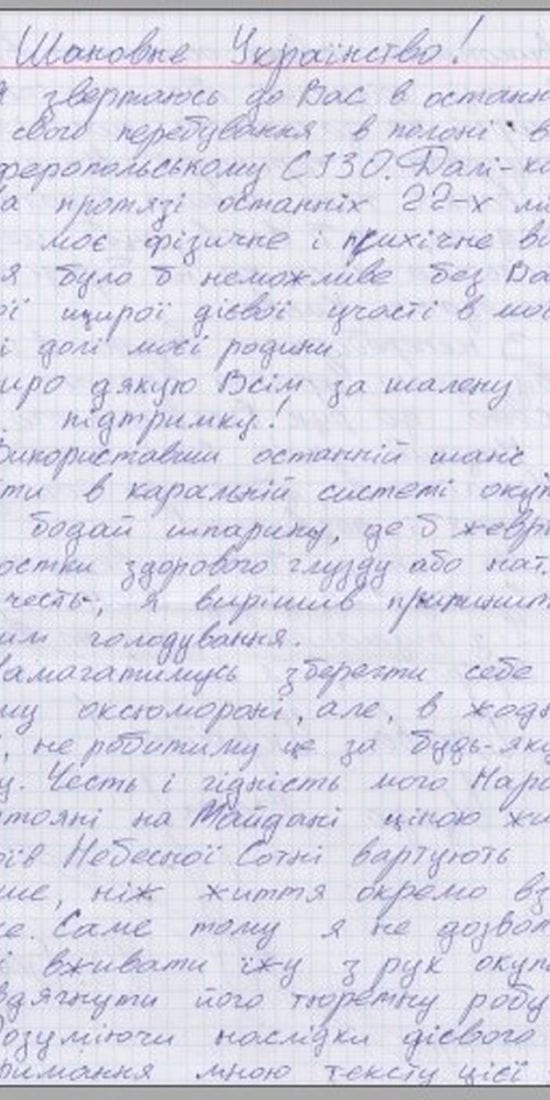 Шановне Українство!
Я звертаюсь до Вас в останн
свого перебування в полоні в
феропольському СІЗО. Далі-ко
а протязі останніх 22-х мі
моє фізичне і психічне ви
я було б неможливе без Ва
ої щирої дієвої участі в мої
і долі моєї родини.
иро дякую Всім за шалену
підтримку!
Використавши останній шанс
ти в каральній системі окуп
бодай шпарину, де б жеврі
остки здорового глузду або нат
честь, я вирішив припинит
им голодування.
Намагатимусь зберегти себе
му оксюмороні, але, в жодн
, не робитиму це за будь-яку
у. Честь і гідність мого Наро
тояні на Майдані ціною жи
оїв Небесної Сотні вартують
ше, ніж життя окремо вз
е. Саме тому я не дозвол
і вживати їжу з рук окуп
вдягнути його тюремну робу
Розуміючи наслідки дієвого
римання мною тексту цієї